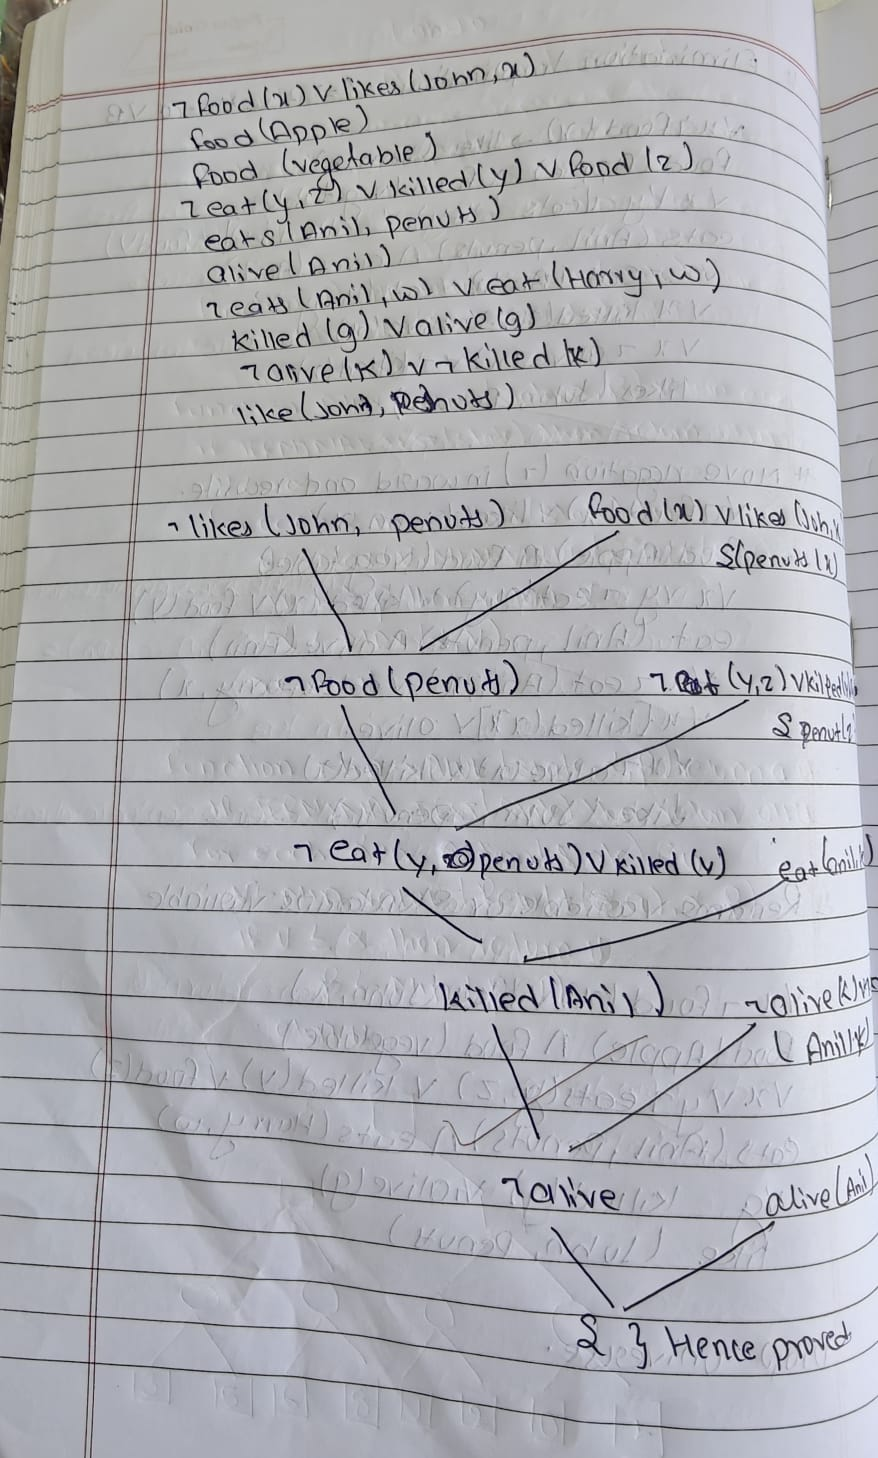 ¬ food (x) V likes (John, x)
food (Apple)
food (vegetable)
¬ eat (y, z) V killed (y) V food (z)
eats (Anil, penuts)
alive (Anil)
¬ eats (Anil, w) V eat (Harry, w)
killed (g) V alive (g)
¬ alive (k) V ¬ killed (k)
like (John, penuts)
¬ likes (John, penuts) food (x) V likes (Joh, x
S(penuts | x)
¬ food (penuts) ¬ eat (y, z) V killed
S penut | z
¬ eat (y, penuts) V killed (y) eat (anil,
killed (Anil) ¬ alive (k) V
( Anil | k)
¬ alive alive (Anil)
{ } Hence proved